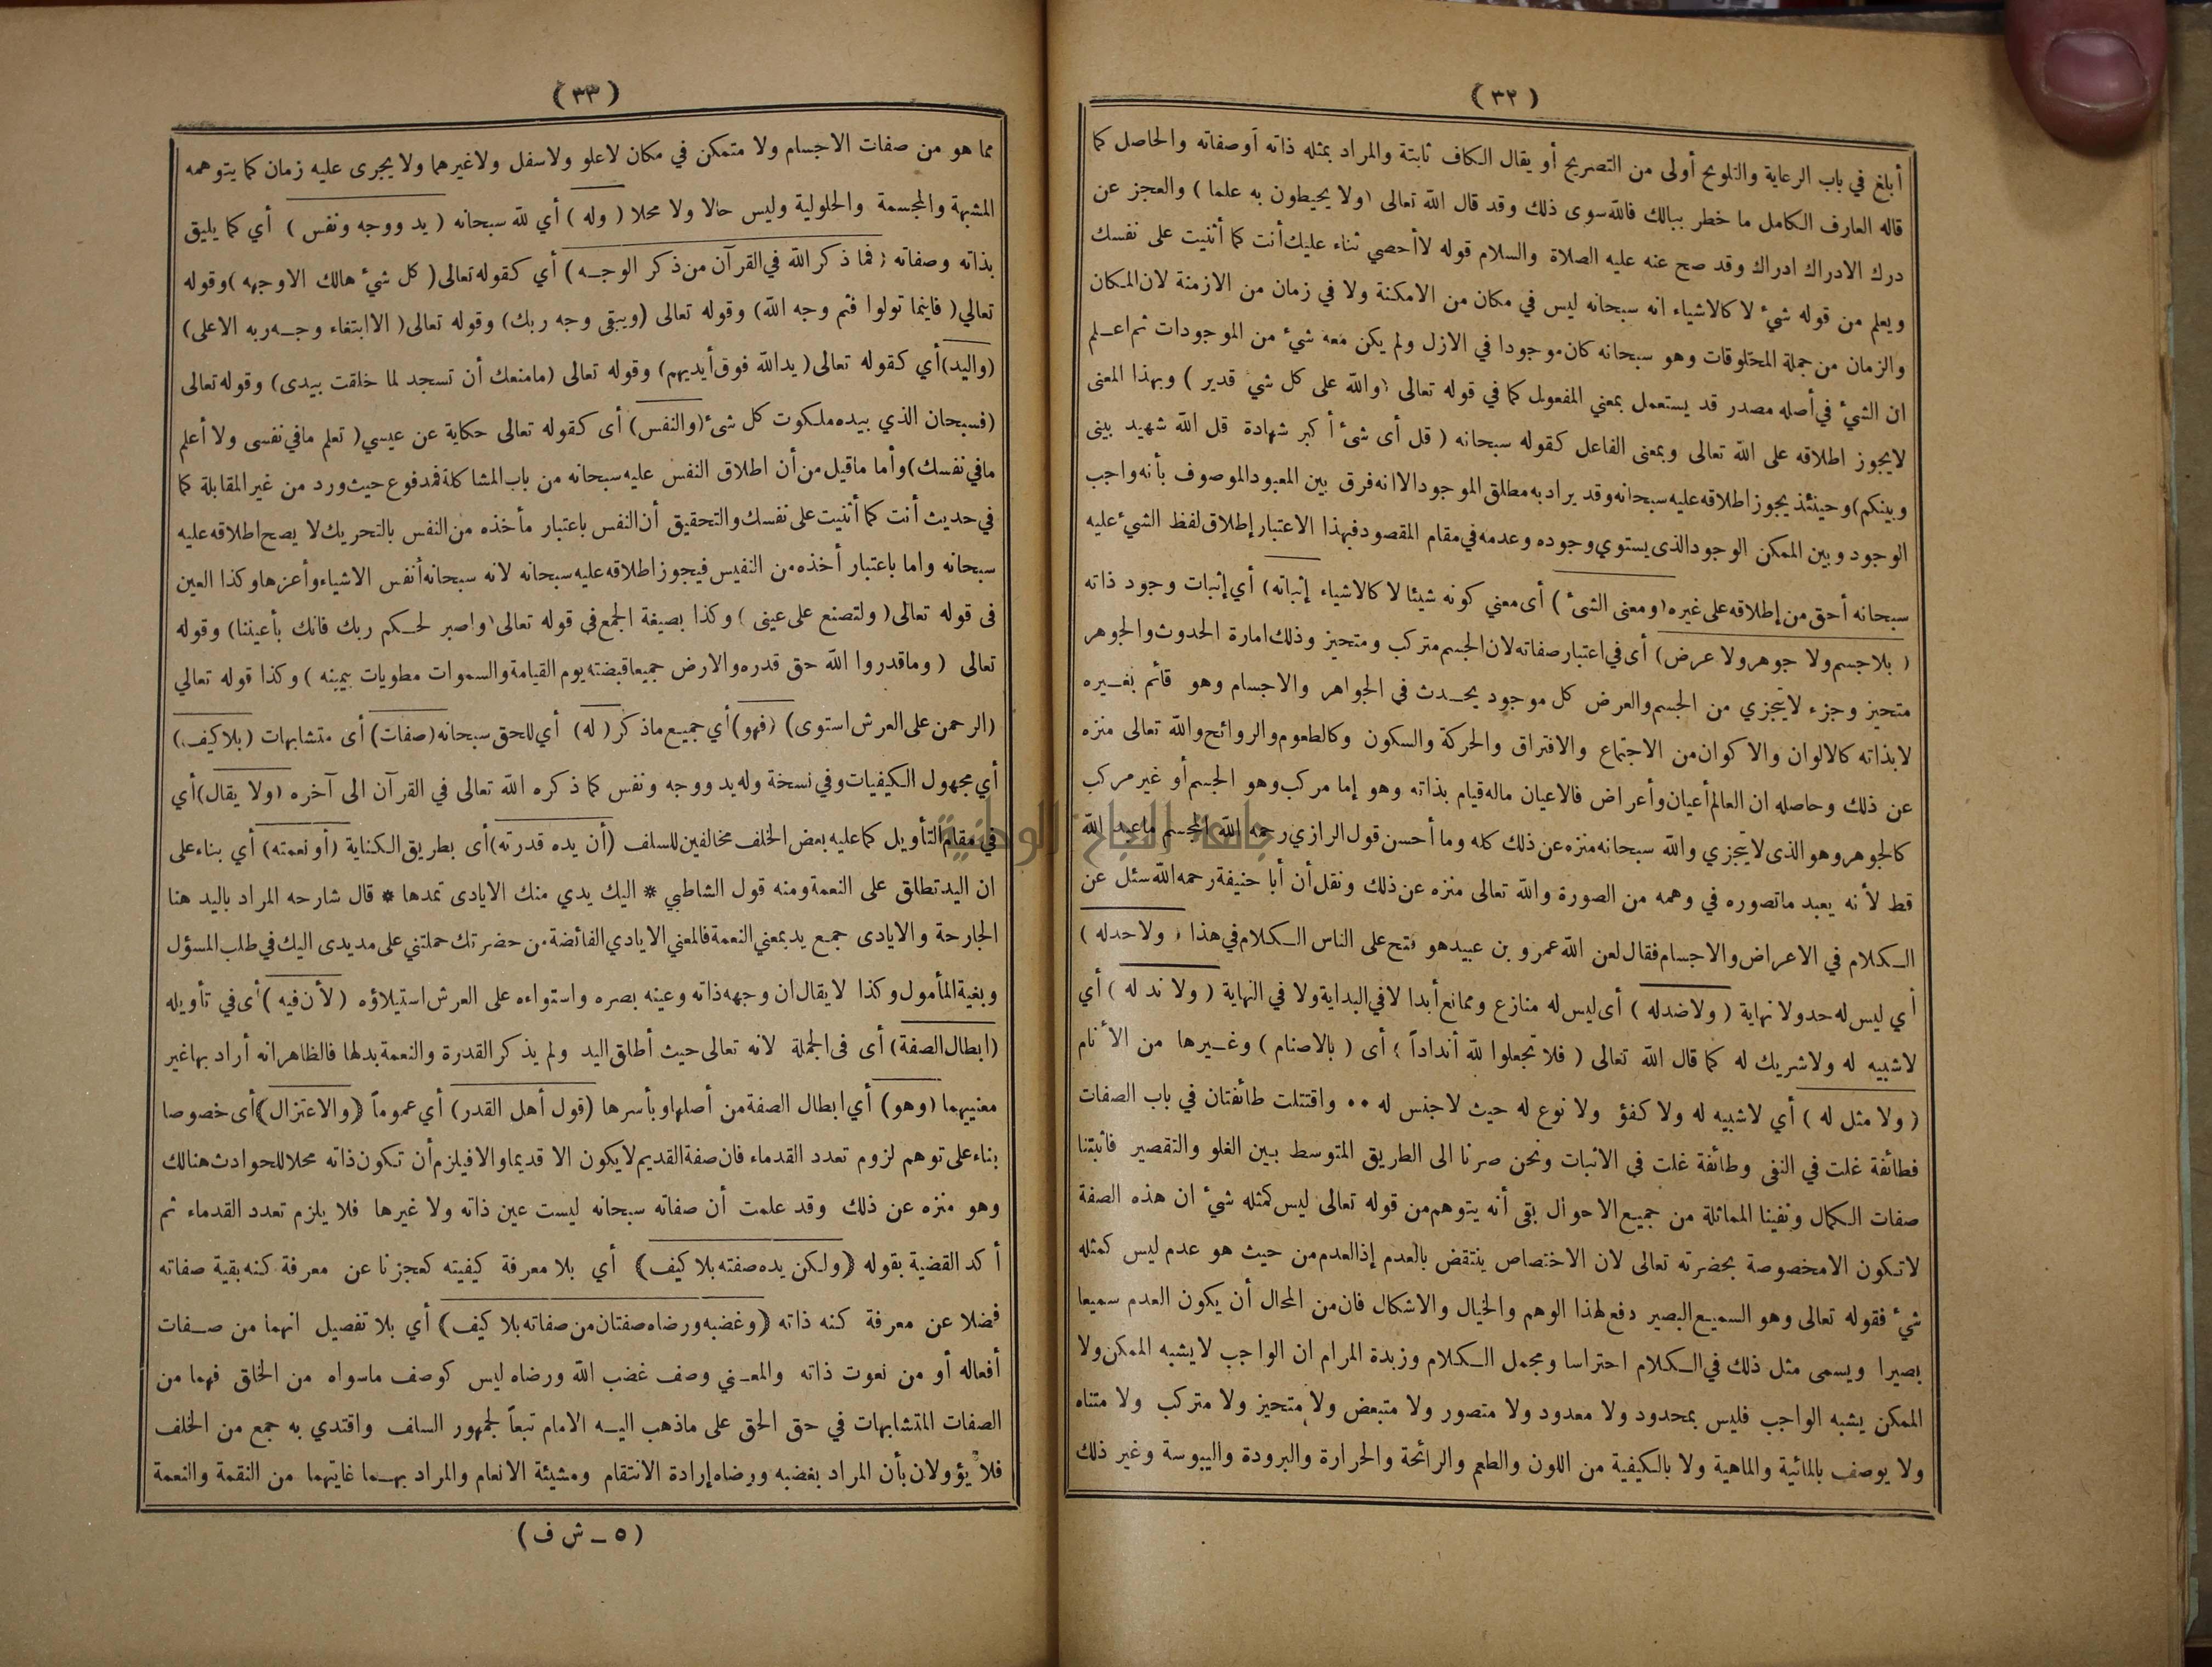 (٣٢)
أبلغ في باب الرعاية والتلويح أولى من التصريح أو يقال الكاف ثابتة والمراد بمثله ذاته أوصفاته والحاصل كما
قاله العارف الكامل ما خطر ببالك فالله سوى ذلك وقد قال الله تعالى (ولا يحيطون به علما) والعجز عن
درك الادراك ادراك وقد صح عنه عليه الصلاة والسلام قوله لاأحصي ثناء عليك أنت كما أثنيت على نفسك
ويعلم من قوله شيء لا كالاشياء انه سبحانه ليس في مكان من الامكنة ولا في زمان من الازمنة لان المكان
والزمان من جملة المخلوقات وهو سبحانه كان موجودا في الازل ولم يكن معه شيء من الموجودات ثم اعلم
ان الشيء في أصله مصدر قد يستعمل بمعني المفعول كما في قوله تعالى (والله على كل شيء قدير) وبهذا المعنى
لايجوز اطلاقه على الله تعالى وبمعنى الفاعل كقوله سبحانه (قل أى شىء أكبر شهادة قل الله شهيد بينى
وبينكم) وحينئذ يجوز اطلاقه عليه سبحانه وقد يراد به مطلق الموجود الا انه فرق بين المعبود الموصوف بأنه واجب
الوجود وبين الممكن الوجود الذى يستوي وجوده وعدمه في مقام المقصود فبهذا الاعتبار إطلاق لفظ الشيء عليه
سبحانه أحق من إطلاقه على غيره (ومعنى الشىء) أى معني كونه شيئا لا كالاشياء إثباته) أي إثبات وجود ذاته
(بلا جسم ولا جوهر ولا عرض) أى في اعتبار صفاته لان الجسم متركب ومتحيز وذلك امارة الحدوث والجوهر
متحيز وجزء لا يتجزي من الجسم والعرض كل موجود يحدث في الجواهر والاجسام وهو قائم بغيره
لابذاته كالالوان والاكوان من الاجتماع والافتراق والحركة والسكون وكالطعوم والروائح والله تعالى منزه
عن ذلك وحاصله ان العالم أعيان وأعراض فالاعيان ماله قيام بذاته وهو إما مركب وهو الجسم أو غير مركب
كالجوهر وهو الذى لا يتجزي والله سبحانه منزه عن ذلك كله وما أحسن قول الرازي رحمه الله المجسم ما عبد الله
قط لأنه يعبد ماتصوره في وهمه من الصورة والله تعالى منزه عن ذلك ونقل أن أبا حنيفة رحمه الله سئل عن
الكلام في الاعراض والاجسام فقال لعن الله عمرو بن عبيد هو فتح على الناس الكلام في هذا (ولا حد له)
أي ليس له حد ولا نهاية (ولا ضد له) أى ليس له منازع وممانع أبدا لا في البداية ولا في النهاية (ولا ند له) أي
لاشبيه له ولاشريك له كما قال الله تعالى (فلا تجعلوا لله أنداداً) أى (بالاصنام) وغيرها من الأنام
(ولا مثل له) أي لاشبيه له ولا كفؤ ولا نوع له حيث لاجنس له ٠٠ واقتتلت طائفتان في باب الصفات
فطائفة غلت في النفى وطائفة غلت في الاثبات ونحن صرنا الى الطريق المتوسط بين الغلو والتقصير فأثبتنا
صفات الكمال ونفينا المماثلة من جميع الاحوال بقى أنه يتوهم من قوله تعالى ليس كمثله شيء ان هذه الصفة
لاتكون الا مخصوصة بحضرته تعالى لان الاختصاص ينتقض بالعدم إذ العدم من حيث هو عدم ليس كمثله
شيء فقوله تعالى وهو السميع البصير دفع لهذا الوهم والخيال والاشكال فان من المحال أن يكون العدم سميعا
بصيرا ويسمى مثل ذلك في الكلام احتراسا ومجمل الكلام وزبدة المرام ان الواجب لايشبه الممكن ولا
الممكن يشبه الواجب فليس بمحدود ولا معدود ولا متصور ولا متبعض ولا متحيز ولا متركب ولا متناه
ولا يوصف بالمائية والماهية ولا بالكيفية من اللون والطعم والرائحة والحرارة والبرودة واليبوسة وغير ذلك
(٣٣)
مما هو من صفات الاجسام ولا متمكن في مكان لاعلو ولاسفل ولاغيرهما ولا يجرى عليه زمان كما يتوهمه
المشبهة والمجسمة والحلولية وليس حالا ولا محلا (وله) أي لله سبحانه (يد ووجه ونفس) أي كما يليق
بذاته وصفاته (فما ذكر الله في القرآن من ذكر الوجه) أي كقوله تعالى (كل شيء هالك الا وجهه) وقوله
تعالي (فاينما تولوا فثم وجه الله) وقوله تعالى (ويبقى وجه ربك) وقوله تعالى (الا ابتغاء وجه ربه الاعلى)
(واليد) أي كقوله تعالى (يد الله فوق أيديهم) وقوله تعالى (مامنعك أن تسجد لما خلقت بيدى) وقوله تعالى
(فسبحان الذي بيده ملكوت كل شىء (والنفس) أى كقوله تعالى حكاية عن عيسي (تعلم مافي نفسى ولا أعلم
مافي نفسك) وأما ماقيل من أن اطلاق النفس عليه سبحانه من باب المشاكلة فمدفوع حيث ورد من غير المقابلة كما
في حديث أنت كما أثنيت على نفسك والتحقيق أن النفس باعتبار مأخذه من النفس بالتحريك لا يصح اطلاقه عليه
سبحانه واما باعتبار أخذه من النفيس فيجوز اطلاقه عليه سبحانه لانه سبحانه أنفس الاشياء وأعزها وكذا العين
فى قوله تعالى (ولتصنع على عينى) وكذا بصيغة الجمع في قوله تعالى (واصبر لحكم ربك فانك بأعيننا) وقوله
تعالى (وماقدروا الله حق قدره والارض جميعا قبضته يوم القيامة والسموات مطويات بيمينه) وكذا قوله تعالي
(الرحمن على العرش استوى) (فهو) أي جميع ماذكر (له) أي للحق سبحانه (صفات) أى متشابهات (بلا كيف)
أي مجهول الكيفيات وفي نسخة وله يد ووجه ونفس كما ذكره الله تعالى في القرآن الى آخره (ولا يقال) أي
في مقام التأويل كما عليه بعض الخلف مخالفين للسلف (أن يده قدرته) أى بطريق الكناية (أو نعمته) أي بناء على
ان اليد تطلق على النعمة ومنه قول الشاطبي * اليك يدي منك الايادى تمدها * قال شارحه المراد باليد هنا
الجارحة والايادى جمع يد بمعني النعمة فالمعني الايادي الفائضة من حضرتك حملتني على مد يدى اليك في طلب المسؤل
وبغية المأمول وكذا لا يقال ان وجهه ذاته وعينه بصره واستواءه على العرش استيلاؤه (لأن فيه) أى في تأويله
(ابطال الصفة) أى فى الجملة لانه تعالى حيث أطلق اليد ولم يذكر القدرة والنعمة بدلها فالظاهر انه أراد بها غير
معنييهما (وهو) أي ابطال الصفة من أصلها وبأسرها (قول أهل القدر) أي عموماً (والاعتزال) أى خصوصا
بناء على توهم لزوم تعدد القدماء فان صفة القديم لا يكون الا قديما والا فيلزم أن تكون ذاته محلا للحوادث هنالك
وهو منزه عن ذلك وقد علمت أن صفاته سبحانه ليست عين ذاته ولا غيرها فلا يلزم تعدد القدماء ثم
أكد القضية بقوله (ولكن يده صفته بلا كيف) أي بلا معرفة كيفيته كعجزنا عن معرفة كنه بقية صفاته
فضلا عن معرفة كنه ذاته (وغضبه ورضاه صفتان من صفاته بلا كيف) أي بلا تفصيل انهما من صفات
أفعاله أو من نعوت ذاته والمعني وصف غضب الله ورضاه ليس كوصف ماسواه من الخلق فهما من
الصفات المتشابهات في حق الحق على ماذهب اليه الامام تبعاً لجمهور السلف واقتدي به جمع من الخلف
فلا يؤولان بأن المراد بغضبه ورضاه إرادة الانتقام ومشيئة الانعام والمراد بهما غايتهما من النقمة والنعمة
(٥ ــ ش ف)
جامعة النجاح الوطنية